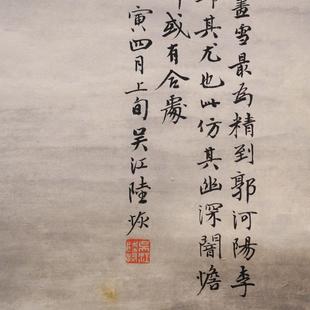 畫雪最為精到郭河陽李
其尤也此仿其幽深闇憺
或有合處
寅四月上旬吳江陸恢